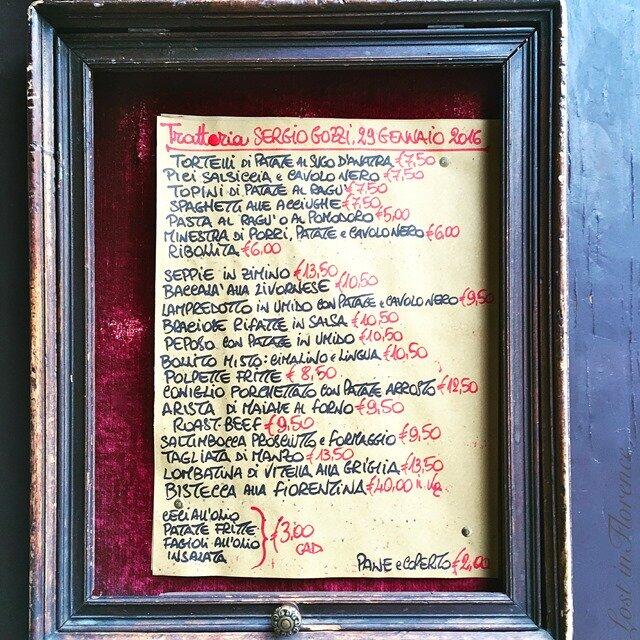 Trattoria SERGIO GOZZI, 29 GENNAIO 2016
TORTELLI DI PATATE AL SUGO D'ANATRA €7,50
PICI SALSICCIA e CAVOLO NERO €7,50
TOPINI DI PATATE AL RAGU' €7,50
SPAGHETTI ALLE ACCIUGHE €7,50
PASTA AL RAGU' O AL POMODORO €5,00
MINESTRA DI PORRI, PATATE e CAVOLO NERO €6,00
RIBOLLITA €6,00
SEPPIE IN ZIMINO €13,50
BACCALA' ALLA LIVORNESE €10,50
LAMPREDOTTO IN UMIDO CON PATATE e CAVOLO NERO €9,50
BRACIOLE RIFATTE IN SALSA €10,50
PEPOSO CON PATATE IN UMIDO €10,50
BOLLITO MISTO: CIMALINO e LINGUA €10,50
POLPETTE FRITTE € 8,50
CONIGLIO PORCHETTATO CON PATATE ARROSTO €12,50
ARISTA DI MAIALE AL FORNO €9,50
ROAST-BEEF €9,50
SALTIMBOCCA PROSCIUTTO e FORMAGGIO €9,50
TAGLIATA DI MANZO €13,50
LOMBATINA DI VITELLA ALLA GRIGLIA €13,50
BISTECCA ALLA FIORENTINA €40,00 il Kg
CECI ALL'OLIO
PATATE FRITTE
FAGIOLI ALL'OLIO
INSALATA
€3,00
CAD.
PANE e COPERTO €2,00
Lost in Florence